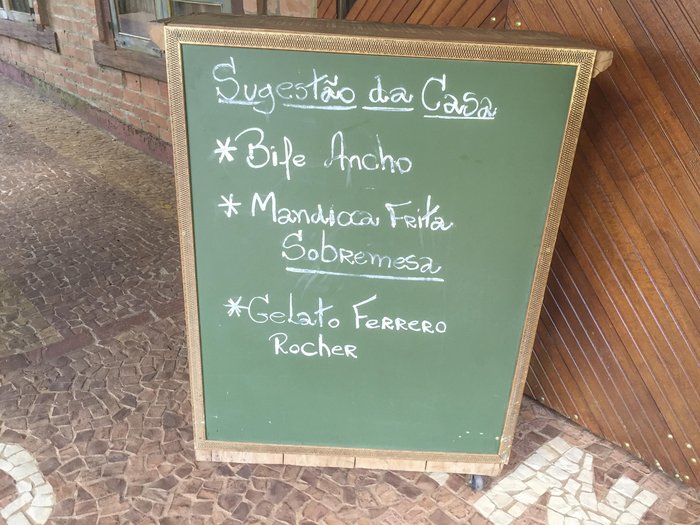 Sugestão da Casa
* Bife Ancho
* Mandioca Frita
Sobremesa
* Gelato Ferrero
Rocher